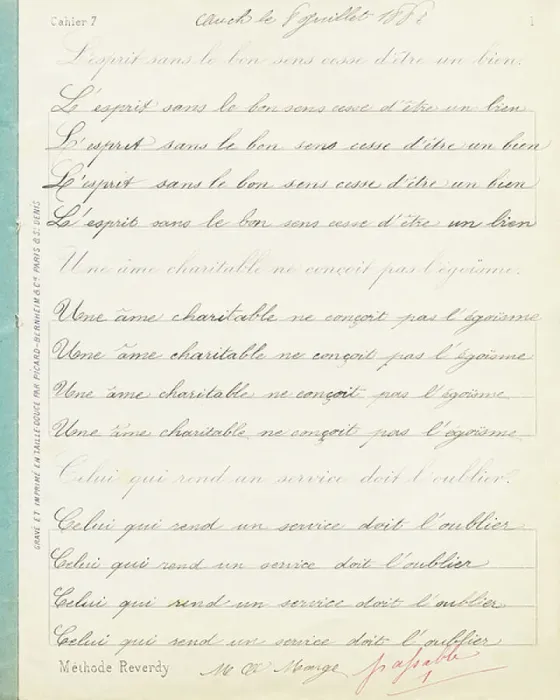 Cahier 7
Auch le 8 Juillet 1882
1
L'esprit sans le bon sens cesse d'être un bien.
L'esprit sans le bon sens cesse d'être un bien
L'esprit sans le bon sens cesse d'être un bien
L'esprit sans le bon sens cesse d'être un bien
L'esprit sans le bon sens cesse d'être un bien
Une âme charitable ne conçoit pas l'égoïsme.
Une âme charitable ne conçoit pas l'égoïsme
Une âme charitable ne conçoit pas l'égoïsme
Une âme charitable ne conçoit pas l'égoïsme
Une âme charitable ne conçoit pas l'égoïsme
Celui qui rend un service doit l'oublier.
Celui qui rend un service doit l'oublier
Celui qui rend un service doit l'oublier
Celui qui rend un service doit l'oublier
Celui qui rend un service doit l'oublier
Méthode Reverdy
passable
1
GRAVÉ ET IMPRIMÉ EN TAILLE-DOUCE PAR PICARD-BERNHEIM & Cie PARIS & St DENIS